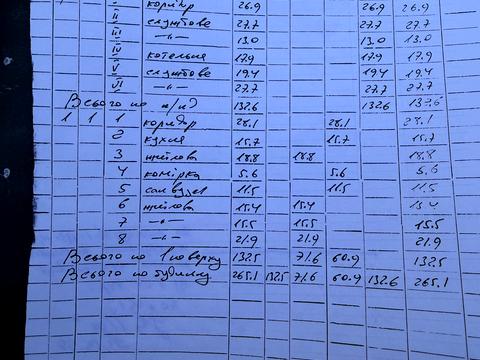 I коридор 26.9 26.9 26.9
II службове 27.7 27.7 27.7
III —"— 13.0 13.0 13.0
IV котельня 17.9 17.9 17.9
V службове 19.4 19.4 19.4
VI —"— 27.7 27.7 27.7
Всього по п/пд 132.6 132.6 132.6
1 1 1 коридор 28.1 28.1 28.1
2 кухня 15.7 15.7 15.7
3 житлова 18.8 18.8 18.8
4 комірка 5.6 5.6 5.6
5 санвузел 11.5 11.5 11.5
6 житлова 15.4 15.4 15.4
7 —"— 15.5 15.5 15.5
8 —"— 21.9 21.9 21.9
Всього по 1 поверху 132.5 71.6 60.9 132.5
Всього по будинку 265.1 132.5 71.6 60.9 132.6 265.1